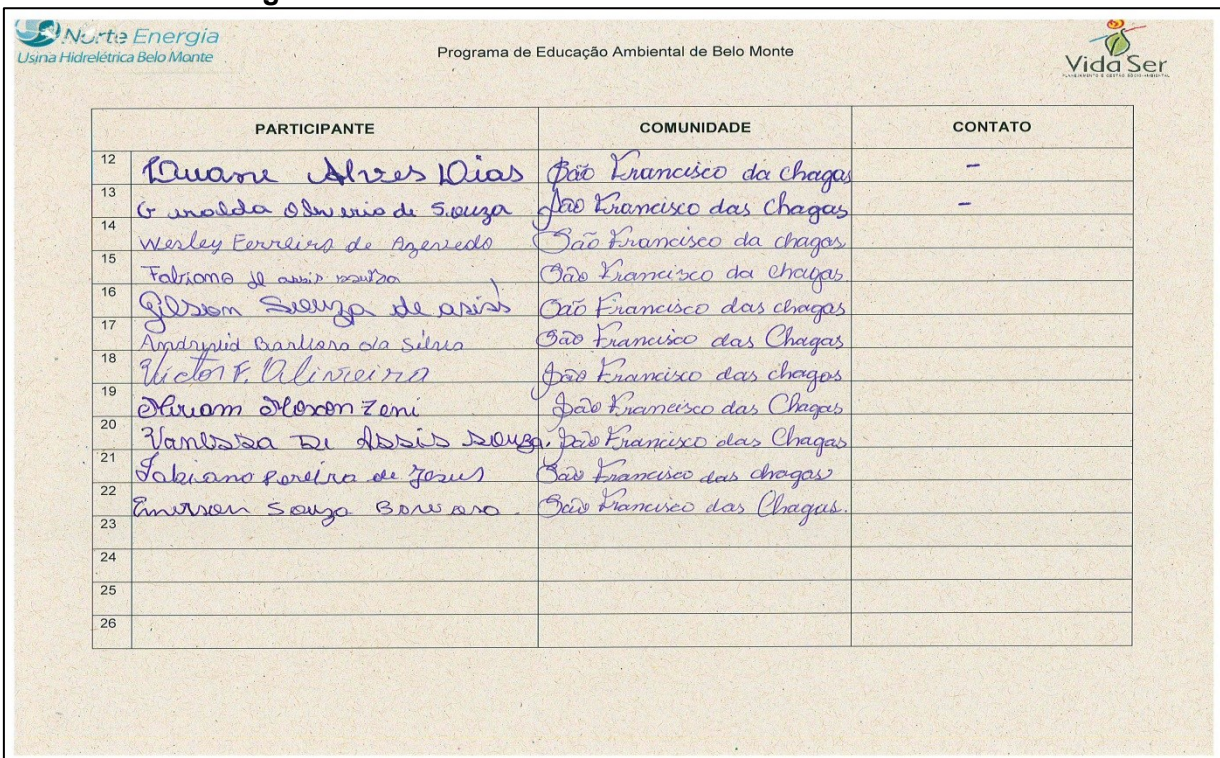 Norte Energia
Usina Hidrelétrica Belo Monte
Programa de Educação Ambiental de Belo Monte
Vida Ser
PARTICIPANTE COMUNIDADE CONTATO
12 Duane Alves Dias São Francisco da chagas -
13 de Souza São Francisco das Chagas -
14 Wesley Ferreira de Azevedo São Francisco da chagas
15 Fabiana de assis souza São Francisco da chagas
16 Gilson Souza de assis São Francisco das chagas
17 Barbara da Silva São Francisco das Chagas
18 Victor F. Oliveira São Francisco das chagas
19 Miriam Zeni São Francisco das Chagas
20 Vanessa De Assis Souza. São Francisco das Chagas
21 Fabiano Pereira de Jesus São Francisco das chagas
22 Emerson Souza São Francisco das Chagas.
23
24
25
26